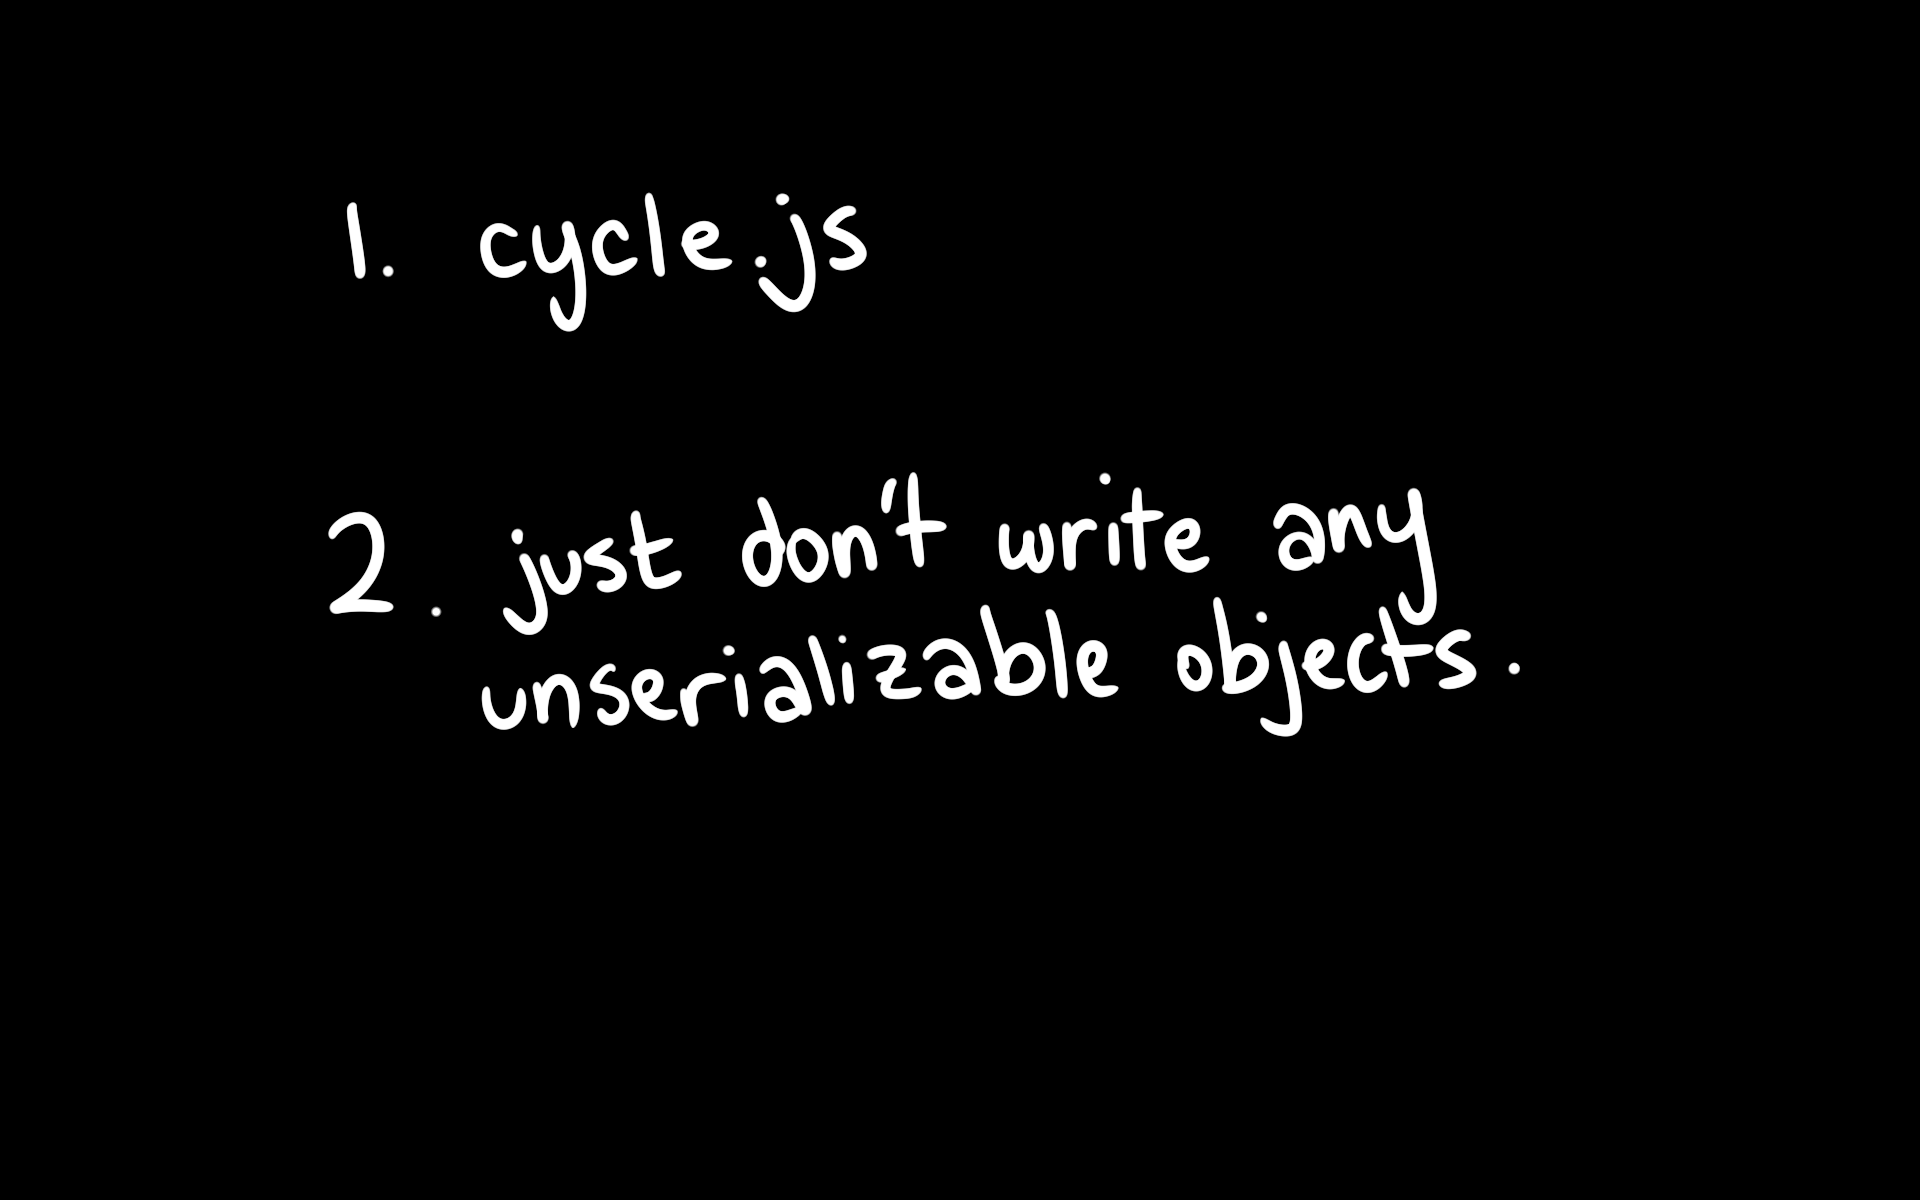 1. cycle.js
2. just don't write any
unserializable objects.